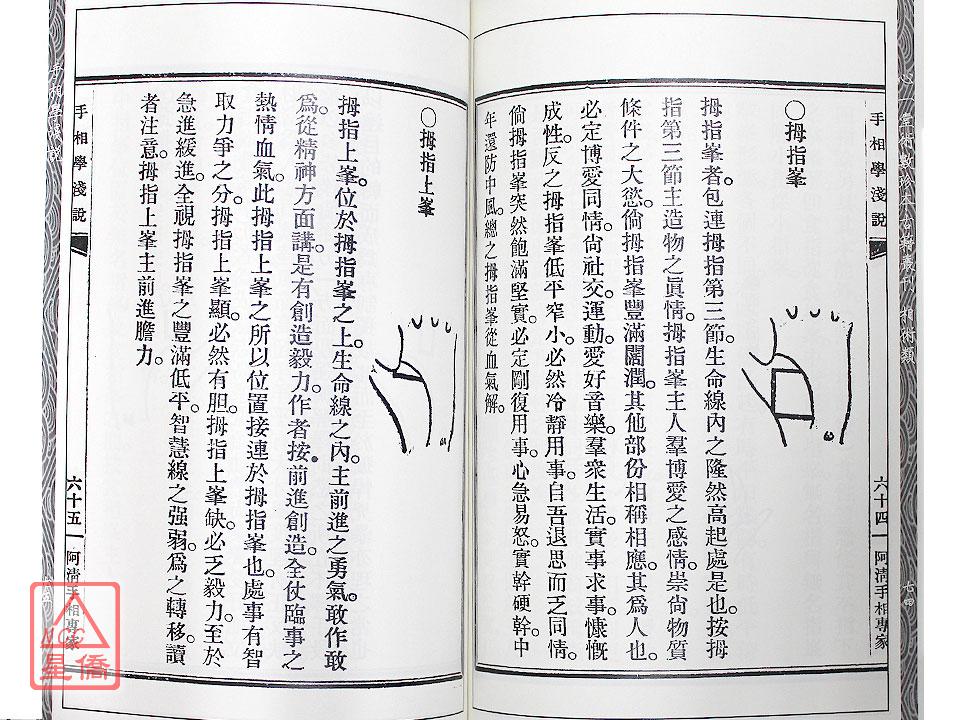 手相學淺說
○拇指峯
拇指峯者。包連拇指第三節。生命線內之隆然高起處是也。按拇
指第三節主造物之眞情。拇指峯主人羣博愛之感情。崇尙物質
條件之大慾。倘拇指峯豐滿闊潤。其他部份相稱相應。其爲人也。
必定博愛同情。尙社交。運動。愛好音樂。羣衆生活。實事求事。慷慨
成性。反之拇指峯低平窄小。必然冷靜用事。自吾退思而乏同情。
倘拇指峯突然飽滿堅實。必定剛復用事。心急易怒。實幹硬幹。中
年還防中風。總之拇指峯從血氣解。
六十四
阿淸手相專家
手相學淺說
○拇指上峯
拇指上峯。位於拇指峯之上。生命線之內。主前進之勇氣。敢作敢
爲。從精神方面講。是有創造毅力。作者按。前進創造。全仗臨事之
熱情血氣。此拇指上峯之所以位置接連於拇指峯也。處事有智
取力爭之分。拇指上峯顯。必然有胆。拇指上峯缺。必乏毅力。至於
急進緩進。全視拇指峯之豐滿低平。智慧線之强弱。爲之轉移。讀
者注意。拇指上峯主前進膽力。
六十五
阿淸手相專家
星僑